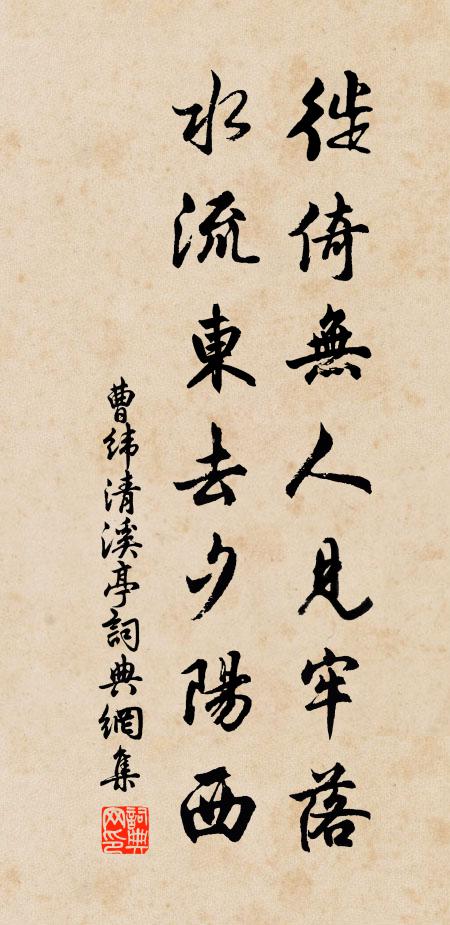 徙倚無人見牢落
水流東去夕陽西
曹緯清溪亭詞典網集
詞典網印